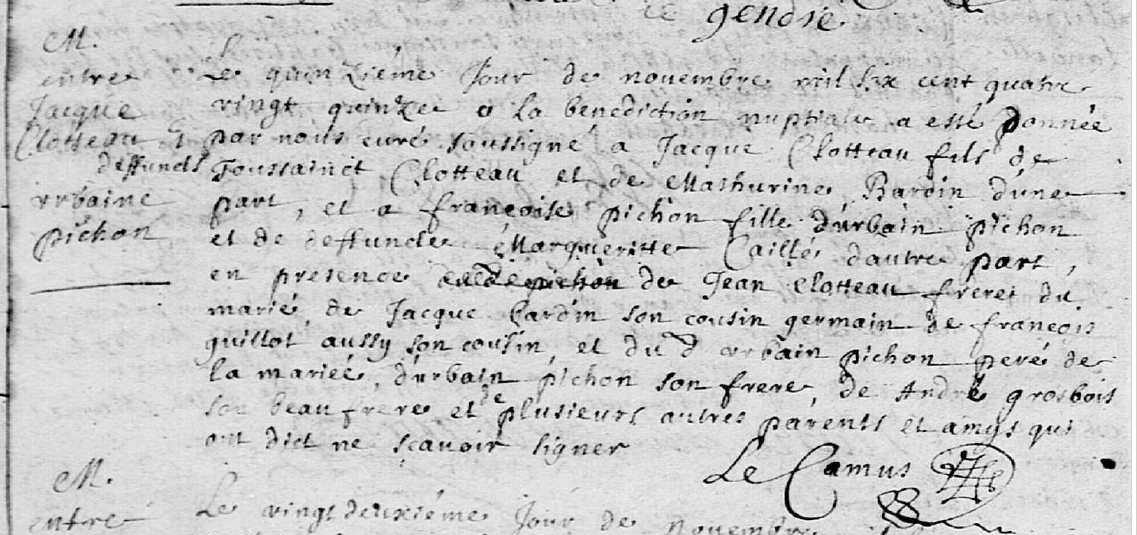 gendre.
M.
entre
Jacque
Clotteau et
urbaine
pichon
Le quinzieme Jour de novembre mil six cent quatre
vingt quinze la benediction nuptiale a esté donnée
par nous curé soussigné a Jacque Clotteau fils de
deffuncts Toussainct Clotteau et de Mathurine Bardin d'une
part, et a françoise pichon fille durbain pichon
et de deffuncte Margueritte Caillé dautre part,
en presence de Jean clotteau frere du
marié de Jacque bardin son cousin germain de françois
guillot aussy son cousin, et dud urbain pichon peré de
la mariée, durbain pichon son frere, de André grosbois
son beau frere et de plusieurs autres parents et amys qui
ont dict ne sçavoir signer
Le Camus
M.
entre
Le vingt deuxiéme Jour de novembre